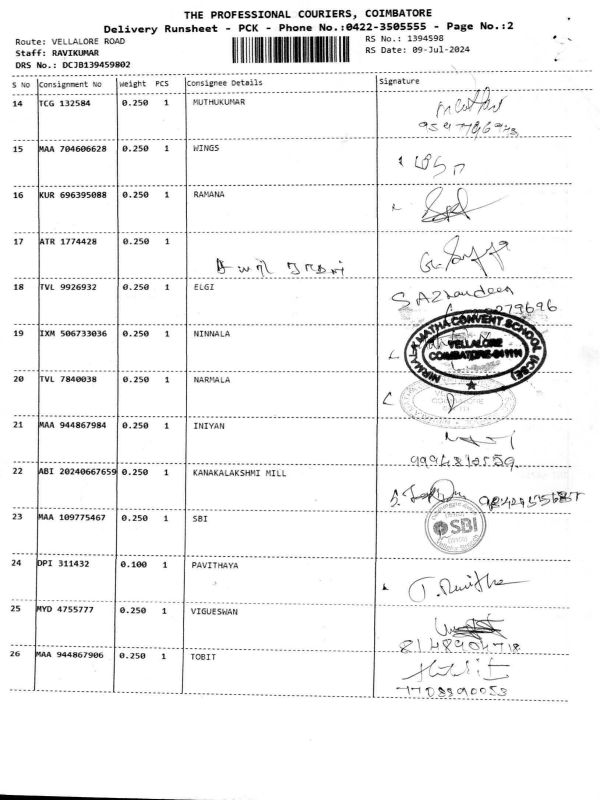 THE PROFESSIONAL COURIERS, COIMBATORE
Delivery Runsheet - PCK - Phone No.:0422-3505555 - Page No.:2
Route: VELLALORE ROAD
RS No.: 1394598
Staff: RAVIKUMAR
RS Date: 09-Jul-2024
DRS No.: DCJB139459802
S No Consignment No Weight PCS Consignee Details Signature
14 TCG 132584 0.250 1 MUTHUKUMAR
15 MAA 704606628 0.250 1 WINGS
16 KUR 696395088 0.250 1 RAMANA
17 ATR 1774428 0.250 1
18 TVL 9926932 0.250 1 ELGI
19 IXM 506733036 0.250 1 NINNALA
NIRMALA MATHA CONVENT SCHOOL (ICSE)
VELLALORE
COIMBATORE-641111
20 TVL 7840038 0.250 1 NARMALA
21 MAA 944867984 0.250 1 INIYAN
9994812559
22 ABI 20240667659 0.250 1 KANAKALAKSHMI MILL
23 MAA 109775467 0.250 1 SBI
SBI
24 DPI 311432 0.100 1 PAVITHAYA
25 MYD 4755777 0.250 1 VIGUESWAN
8148904718
26 MAA 944867906 0.250 1 TOBIT
7708890053